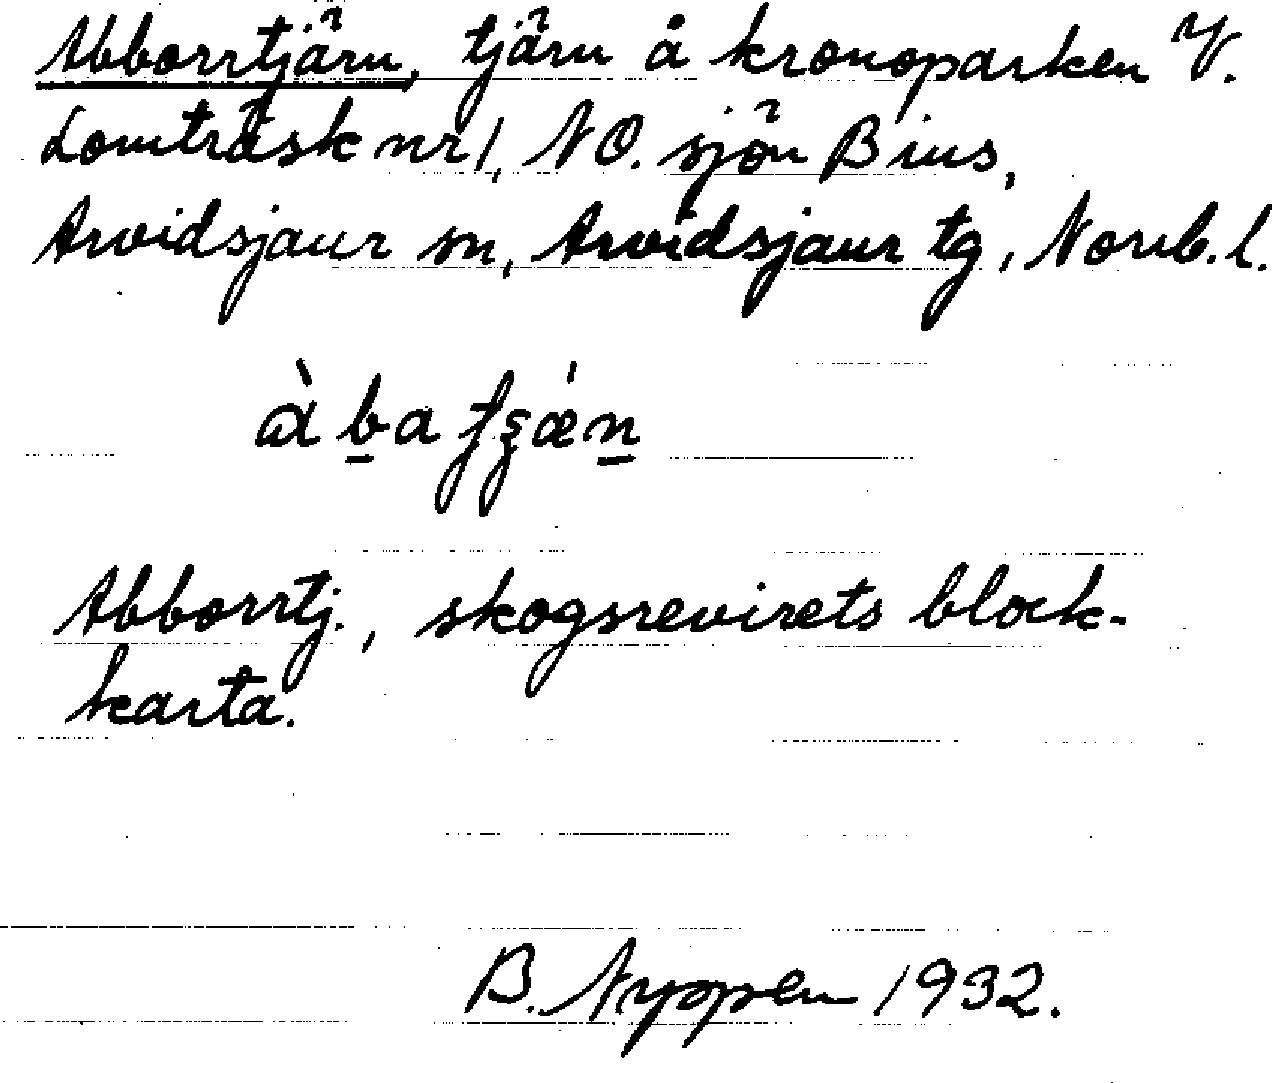 Abborrtjärn, tjärn å kronoparken V.
Lomträsk nr 1, NO. sjön Bius,
Arvidsjaur sn, Arvidsjaur tg, Norrb. l.
Abborrtj., skogsrevirets block-
karta.
B. Nyppen 1932.